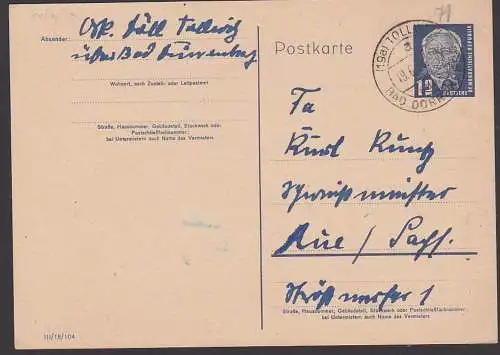 Absender:
über Bad Dürrenberg
Wohnort, auch Zustell- oder Leitpostamt
Straße, Hausnummer, Gebäudeteil, Stockwerk oder
Postschließfachnummer;
bei Untermietern auch Name des Vermieters
III/18/104
Postkarte
71
(19a) TOLL
BAD DÜRR
12
DEUTSCHE
DEMOKRATISCHE REPUBLIK
Fa
Kurt Kuntz
Aue / Sachs.
1
Straße, Hausnummer, Gebäudeteil, Stockwerk oder Postschließfachnummer;
bei Untermietern auch Name des Vermieters